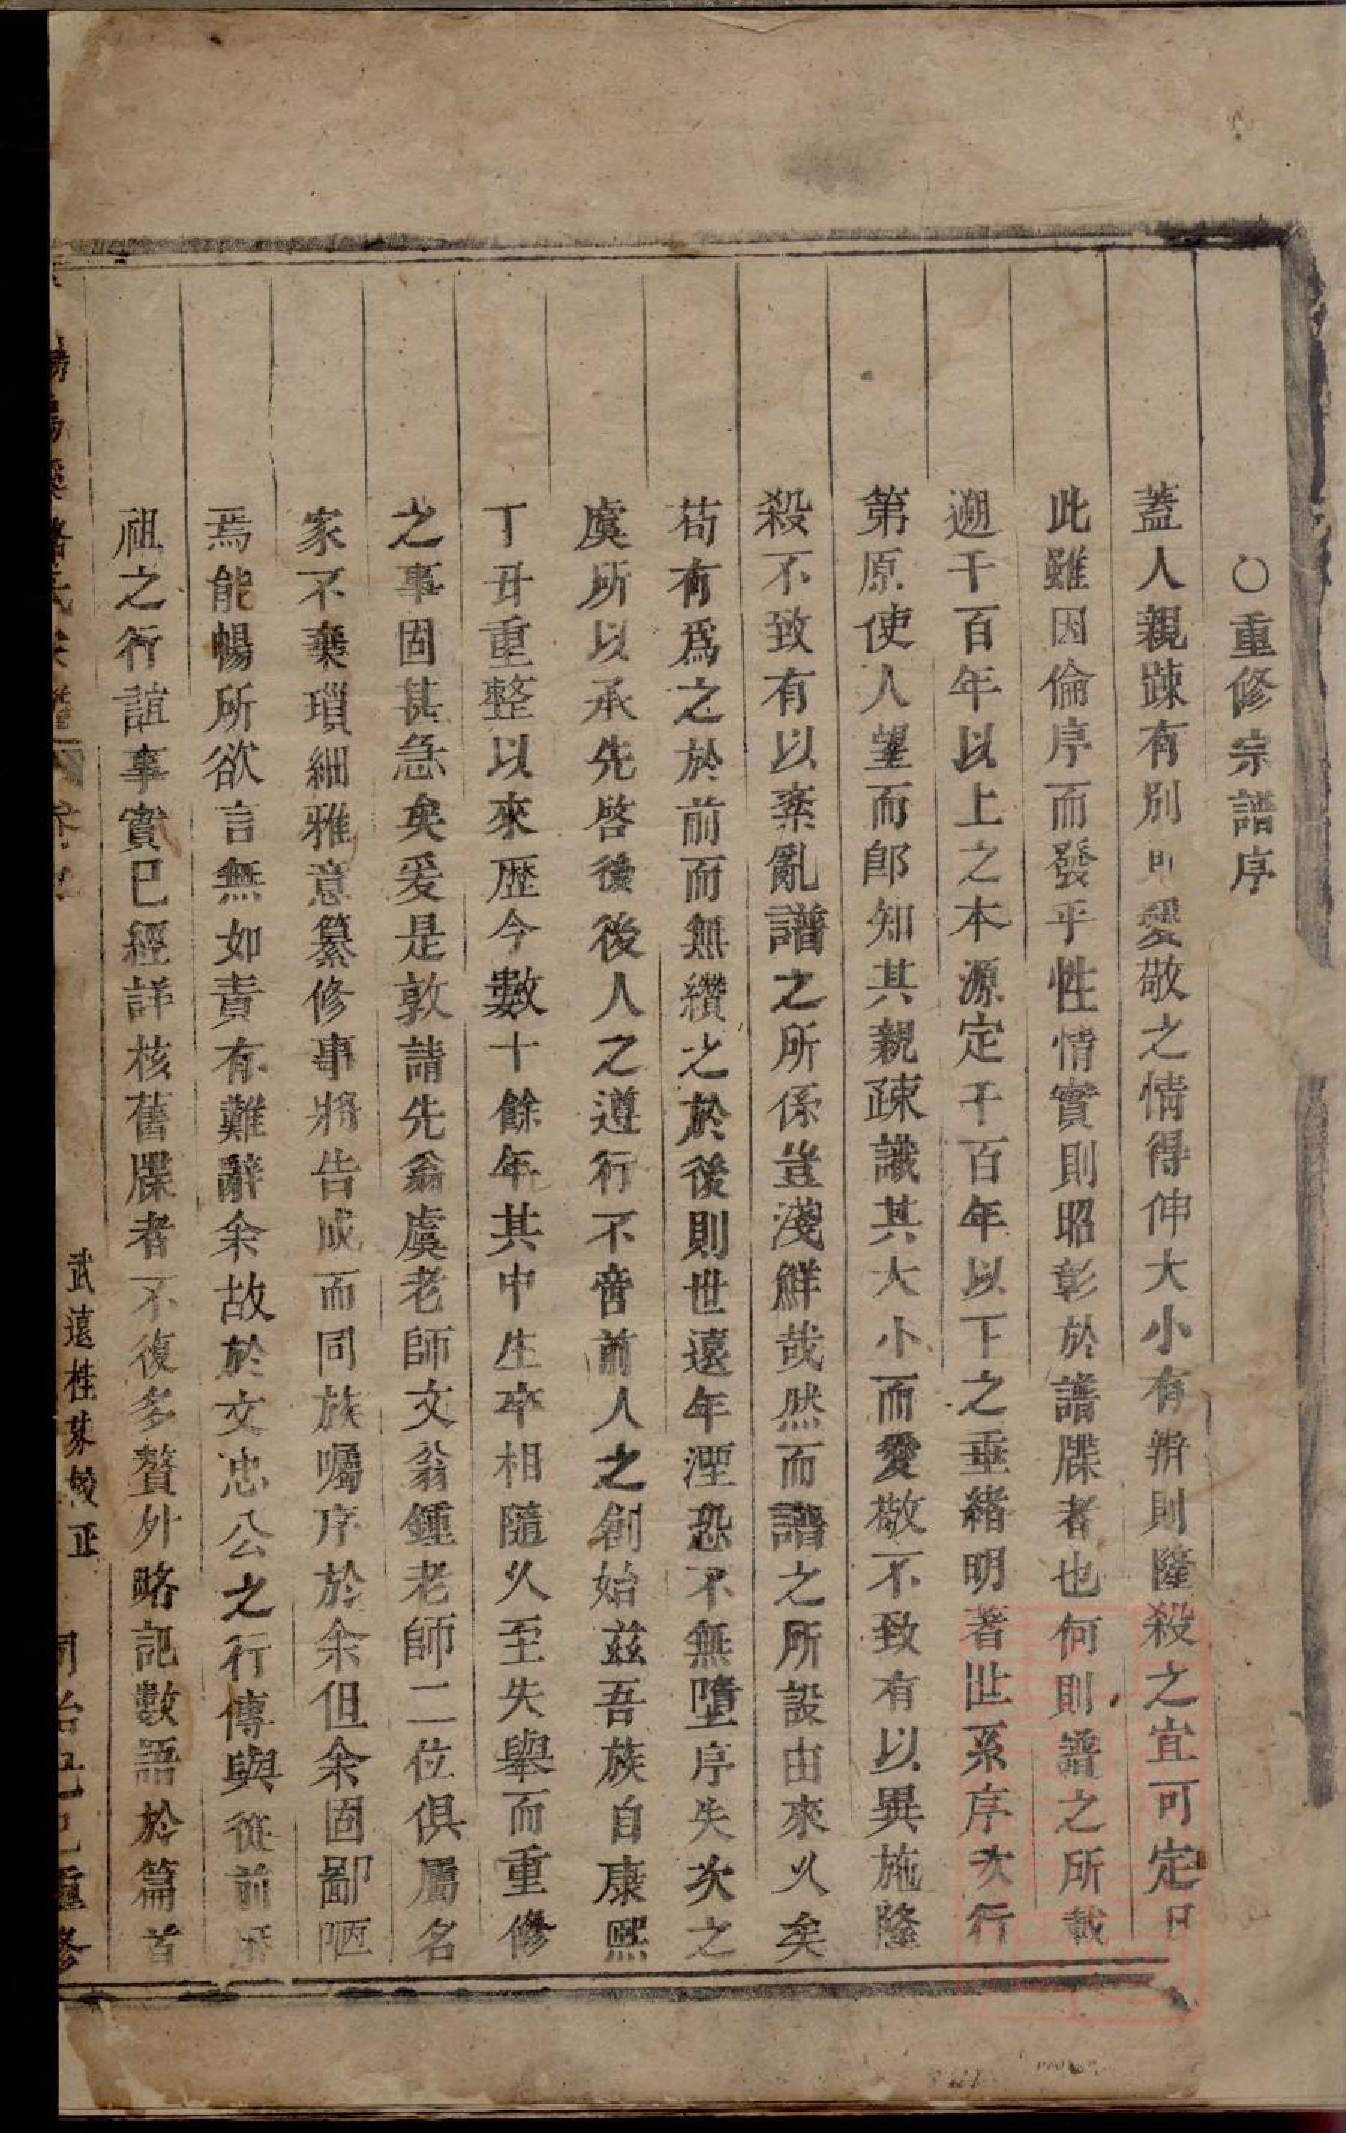 ○重修宗譜序
蓋人親踈有別而愛敬之情得伸大小有辨則隆殺之宜可定
此雖因倫序而發乎性情實則昭彰於譜牒者也何則譜之所載
遡千百年以上之本源定千百年以下之垂緒明著世系序次行
第原使人望而卽知其親疎識其大小而愛敬不致有以異施隆
殺不致有以紊亂譜之所係豈淺鮮哉然而譜之所設由來乆矣
苟有爲之於前而無纘之於後則世遠年湮恐不無墮序失次之
虞所以承先啓後後人之遵行不啻前人之創始茲吾族自康熙
丁丑重整以來歷今數十餘年其中生卒相隨乆至失舉而重修
之事固甚急矣爰是敦請先翁虞老師文翁鍾老師二位俱屬名
家不棄瑣細雅意纂修事將告成而同族囑序於余但余固鄙
焉能暢所欲言無如責有難辭余故於文忠公之行傳與從前歷
祖之行誼事實已經詳核舊牒者不復多贅外略記數語於篇首
武遠桂棻較正
同治己巳重修